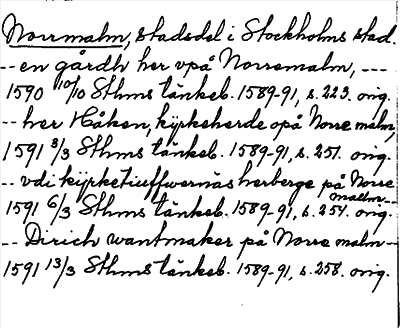 Norrmalm, stadsdel i Stockholms stad.
-- en gårdh her vpå Norremalm, ---
1590 10/10 Sthms tänkeb. 1589-91, s. 223. orig.
-- her Håken, kyrkeherde opå Norre malm,
1591 3/3 Sthms tänkeb. 1589-91, s. 251. orig.
-- vdi kyrketiuffwernäs herberge på Norre
malm --
1591 6/3 Sthms tänkeb. 1589-91, s. 254. orig.
-- Dirich wantmaker på Norre malm --
1591 13/3 Sthms tänkeb. 1589-91, s. 258. orig.